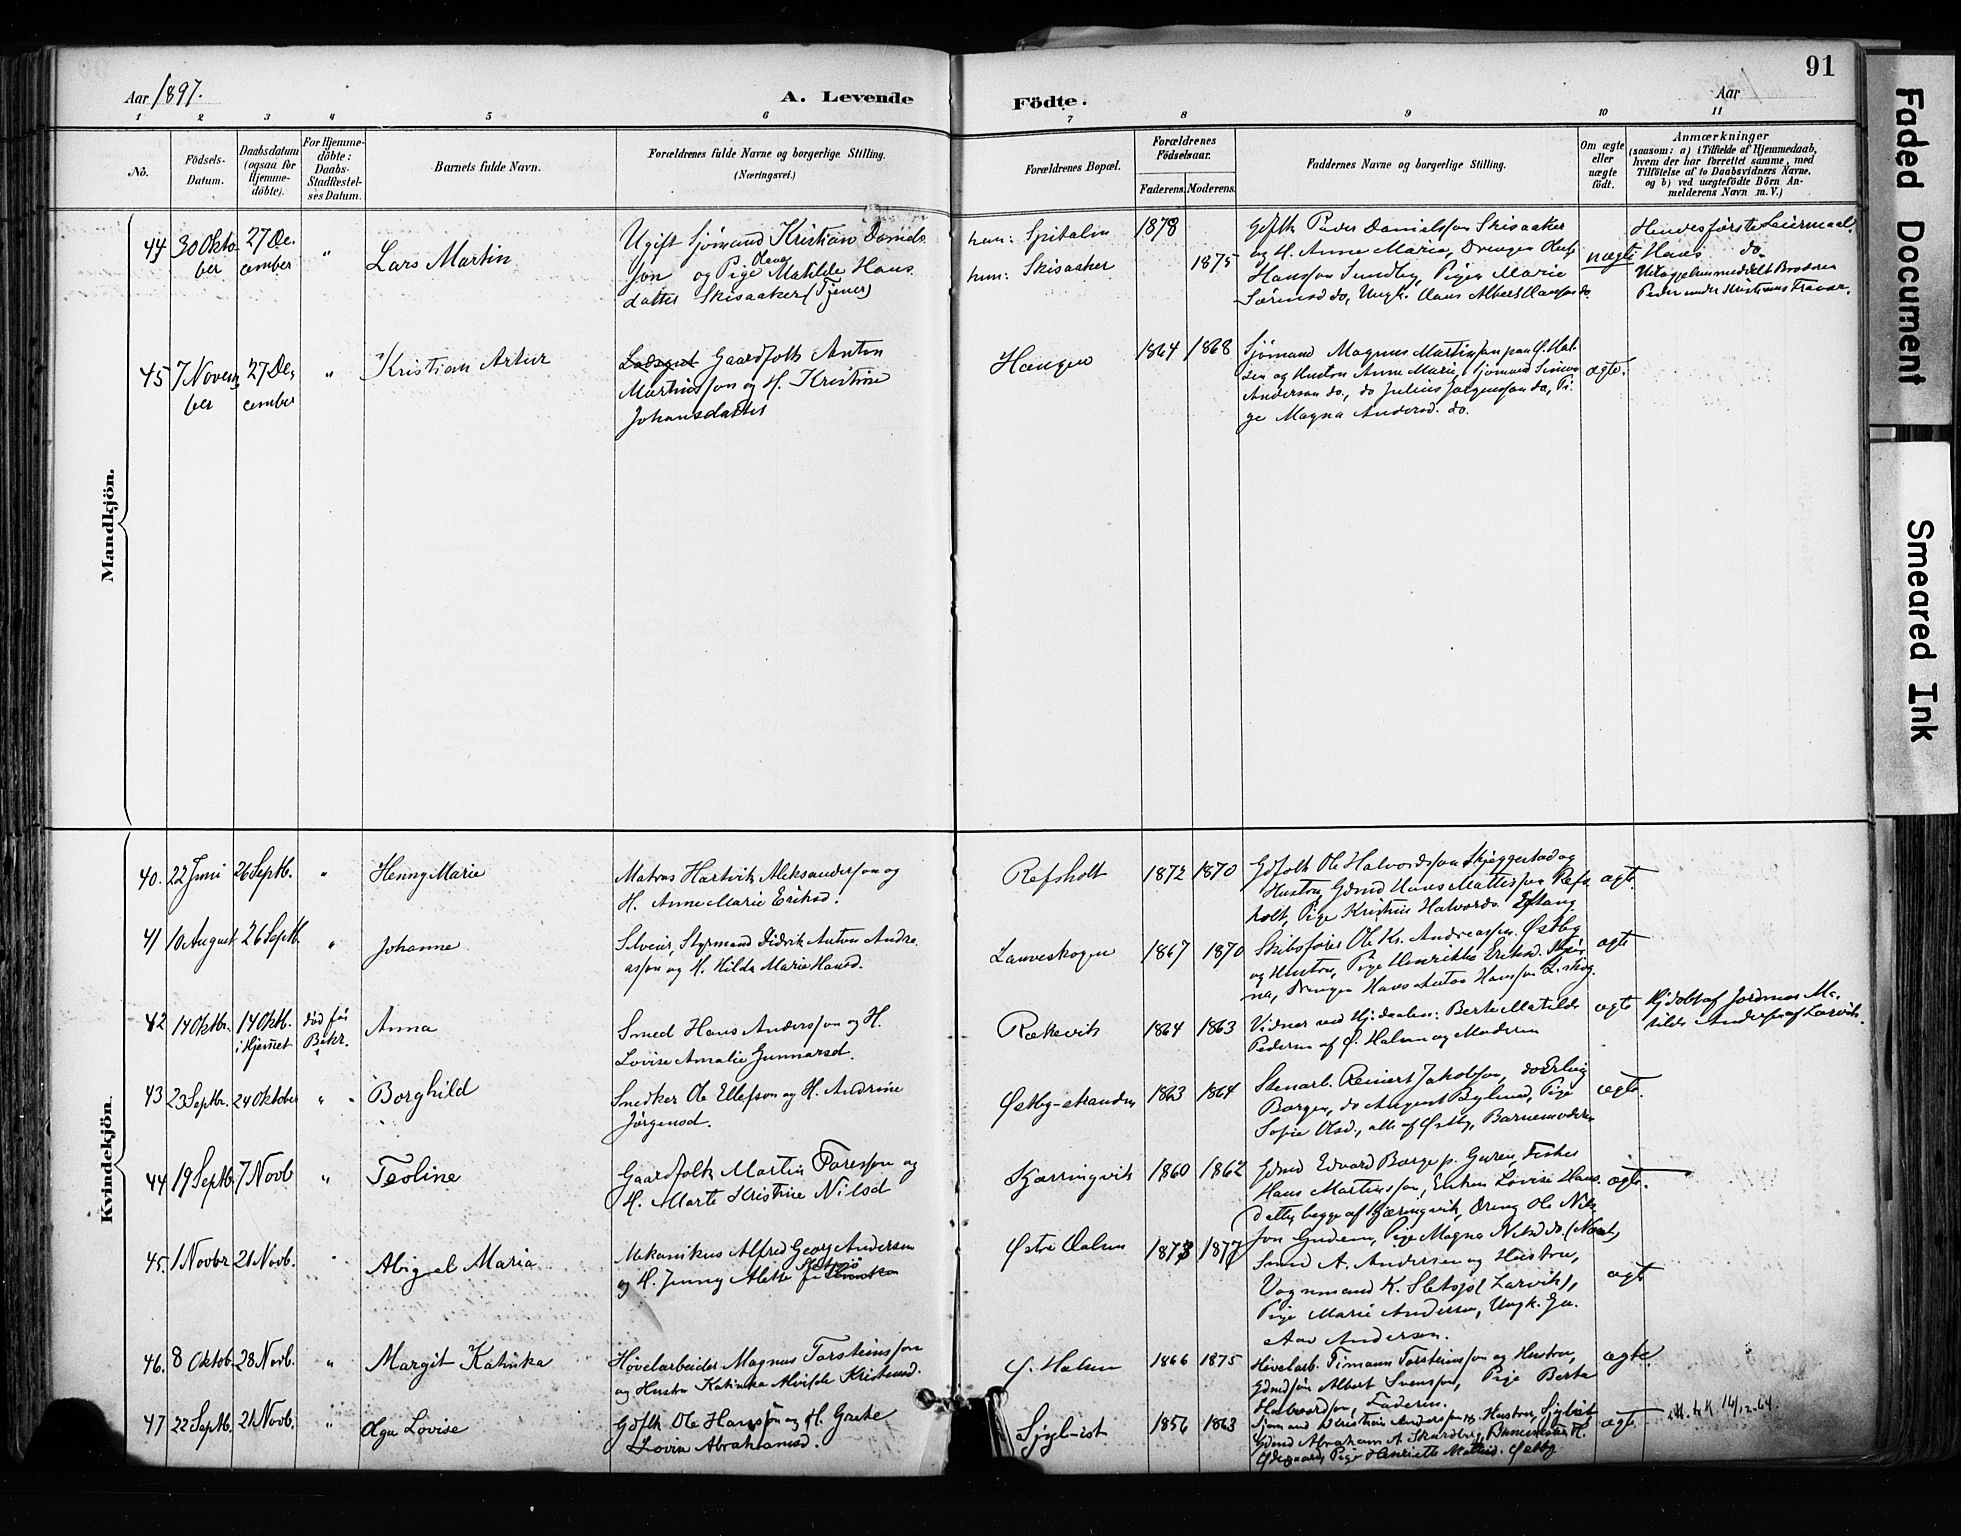 91
Aar 1897.
A. Levende
Födte.
Aar
1 2 3 4 5 6 7 8 9 10 11
No.
Födsels-
Datum.
Daabsdatum
(ogsaa for
Hjemme-
döbte).
For Hjemme-
döbte:
Daabs-
Stadfæstel-
ses Datum.
Barnets fulde Navn.
Forældrenes fulde Navne og borgerlige Stilling.
(Næringsvei.)
Forældrenes Bopæl.
Forældrenes
Födselsaar.
Faderens. Moderens.
Faddernes Navne og borgerlige Stilling.
Om ægte
eller
uægte
födt.
Anmærkninger
(saasom: a) i Tilfælde af Hjemmedaab,
hvem der har forrettet samme, med
Tilföielse af to Daabsvidners Navne,
og b) ved uægtefödte Börn An-
melderens Navn m. V.)
Mandkjön.
44 30 Okto-
ber
27 De-
cember
"
Lars Martin
Ugift Sjømand Kristian Daniels-
søn og Pige Olava Matilde Hans-
datter Skisaaker (Tjener)
han: Spitalen
hun: Skisaaker
1878
1875
Gdflk Peder Danielssøn Skisaaker
og H. Anne Marie, Drengen Oluf
Hanssøn Sundby, Pigen Marie
Sørensd do, Ungk. Hans Albert Hanssøn do.
uægte
Hendes første Leiermaal.
Hans do.
45 7 Novem-
ber
27 De-
cember
"
Kristian Artur
Gaardfolk Anton
Martinssøn og H. Kristine
Johansdatter
Haugen
1864 1868
Sjømand Magnus Martinssøn paa Ø. Hal-
sen og Hustru Anne Marie, Sjømand Simon
Anderssen do., do Julius Jørgenssøn do, Pi-
ge Magna Andersd. do.
ægte.
Kvindekjön.
40. 22 Juni 26 Septb. "
Henny Marie
Matros Hartvik Aleksanderssøn og
H. Anne Marie Eriksd.
Refsholt
1872 1870
Gdfolk Ole Halvordssøn Skjeggestad og
Hustru, Gdmd Hans Mattissøn Refs-
holt, Pige Kristine Halvorsd.
ægte.
41 10 August 26 Septb. "
Johanne
Styrmand Didrik Anton Andre-
assøn og H. Hilda Marie Hansd.
Lauveskogen
1867 1870
Skibsfører Ole Kr. Andreassøn Østby
og Hustru, Pige Henrikke Eriksd.
Drengen Hans Anton Hanssøn L.skog.
ægte
42 14 Oktbr. 14 Oktb.
i Hjemmet
død før
Bekr.
Anna
Smed Hans Anderssøn og H.
Lovise Amalie Gunnarsd.
Rækevik
1864 1863
Vidner ved Hj.daaben: Berte Matilde
Pedersen af Ø. Halsen og Moderen
ægte
Hj.døbt af Jordmor Ma-
tilde Anderssen af Larvik.
43 23 Septbr. 24 Oktober "
Borghild
Snedker Ole Ellefsøn og H. Andrine
Jørgensd.
Østby-stranden
1863 1864
Stenarb. Reinert Jakobsøn, do Erling
Borgen, do August Bylund, Pige
Sofie Olsd., alle af Østby, Barnemoderen
ægte.
44 19 Septb. 7 Novb "
Teoline
Gaardfolk Martin Paressøn og
H. Marte Kristine Nilsd
Kjærringvik
1860 1862
Gdmd Edvard Borge p. Guren, Fisker
Hans Martinssøn, Enken Lovise Hans-
datter, begge af Kjæringvik, Dreng Ole Nils-
søn Guden, Pige Magna Nilsd do
ægte.
45. 1 Novbr 21 Novb. "
Abigael Maria
Mekanikus Alfred Georg Andersen
og H. Jenny Alette f. Sletsjø
Østre Halsen
1873 1877
Smed A. Andersen og Hustru,
Vognmand K. Sletsjø (Larvik),
Pige Marie Andersen, Ungk. Gu-
stav Andersen.
ægte
46. 8 Oktob. 28 Novb. "
Margit Katinka
Høvelarbeider Magnus Torsteinssøn
og Hustru Katinka Alvilde Kristensd.
Ø. Halsen
1866 1875
Høvelarb. Timann Torsteinssøn og Hustru,
Gdmdsøn Albert Svenssøn, Pige Berta
Halvordsen, Faderen.
ægte.
47 22 Septb. 21 Novb. "
Olga Lovise
Gdflk Ole Hanssøn og H. Grete
Lovise Abrahamsd.
Sjylvist
1856 1863
Sjømand Kristian Anderssøn og Hustru, Sjylvist
Gdmd Abraham A. Skardberg,
Ødegaard, Pige Henriette Mattisd. Østby
ægte
14/12-64.
Faded Document
Smeared Ink